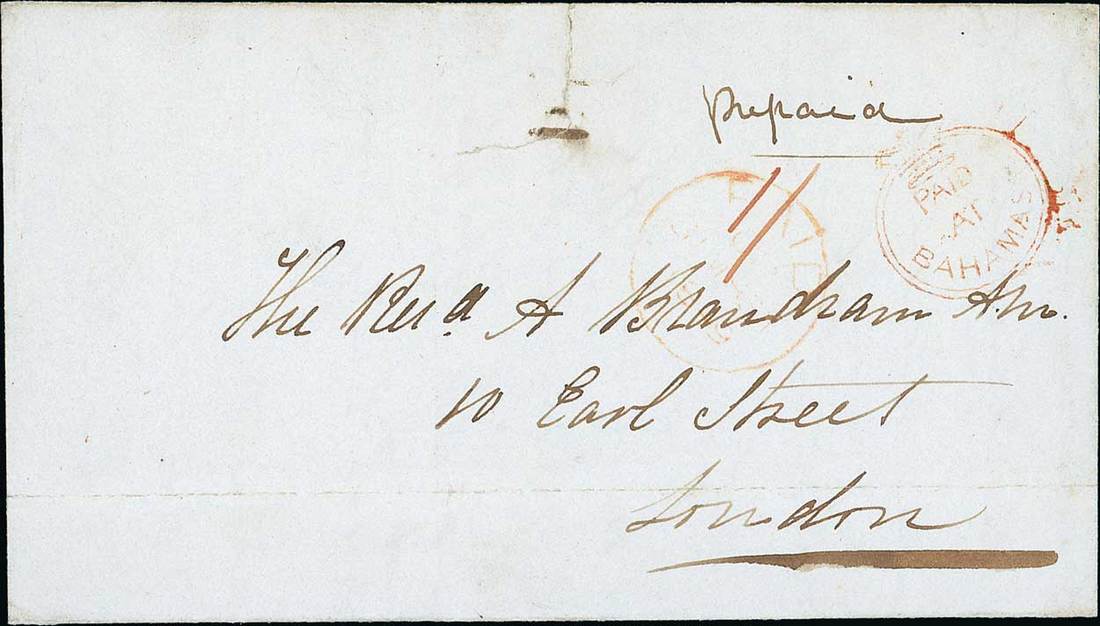 prepaid
1/
PAID
AT
BAHAMAS
PAID
The Revd. A Brandram A.m.
10 Earl Street
London